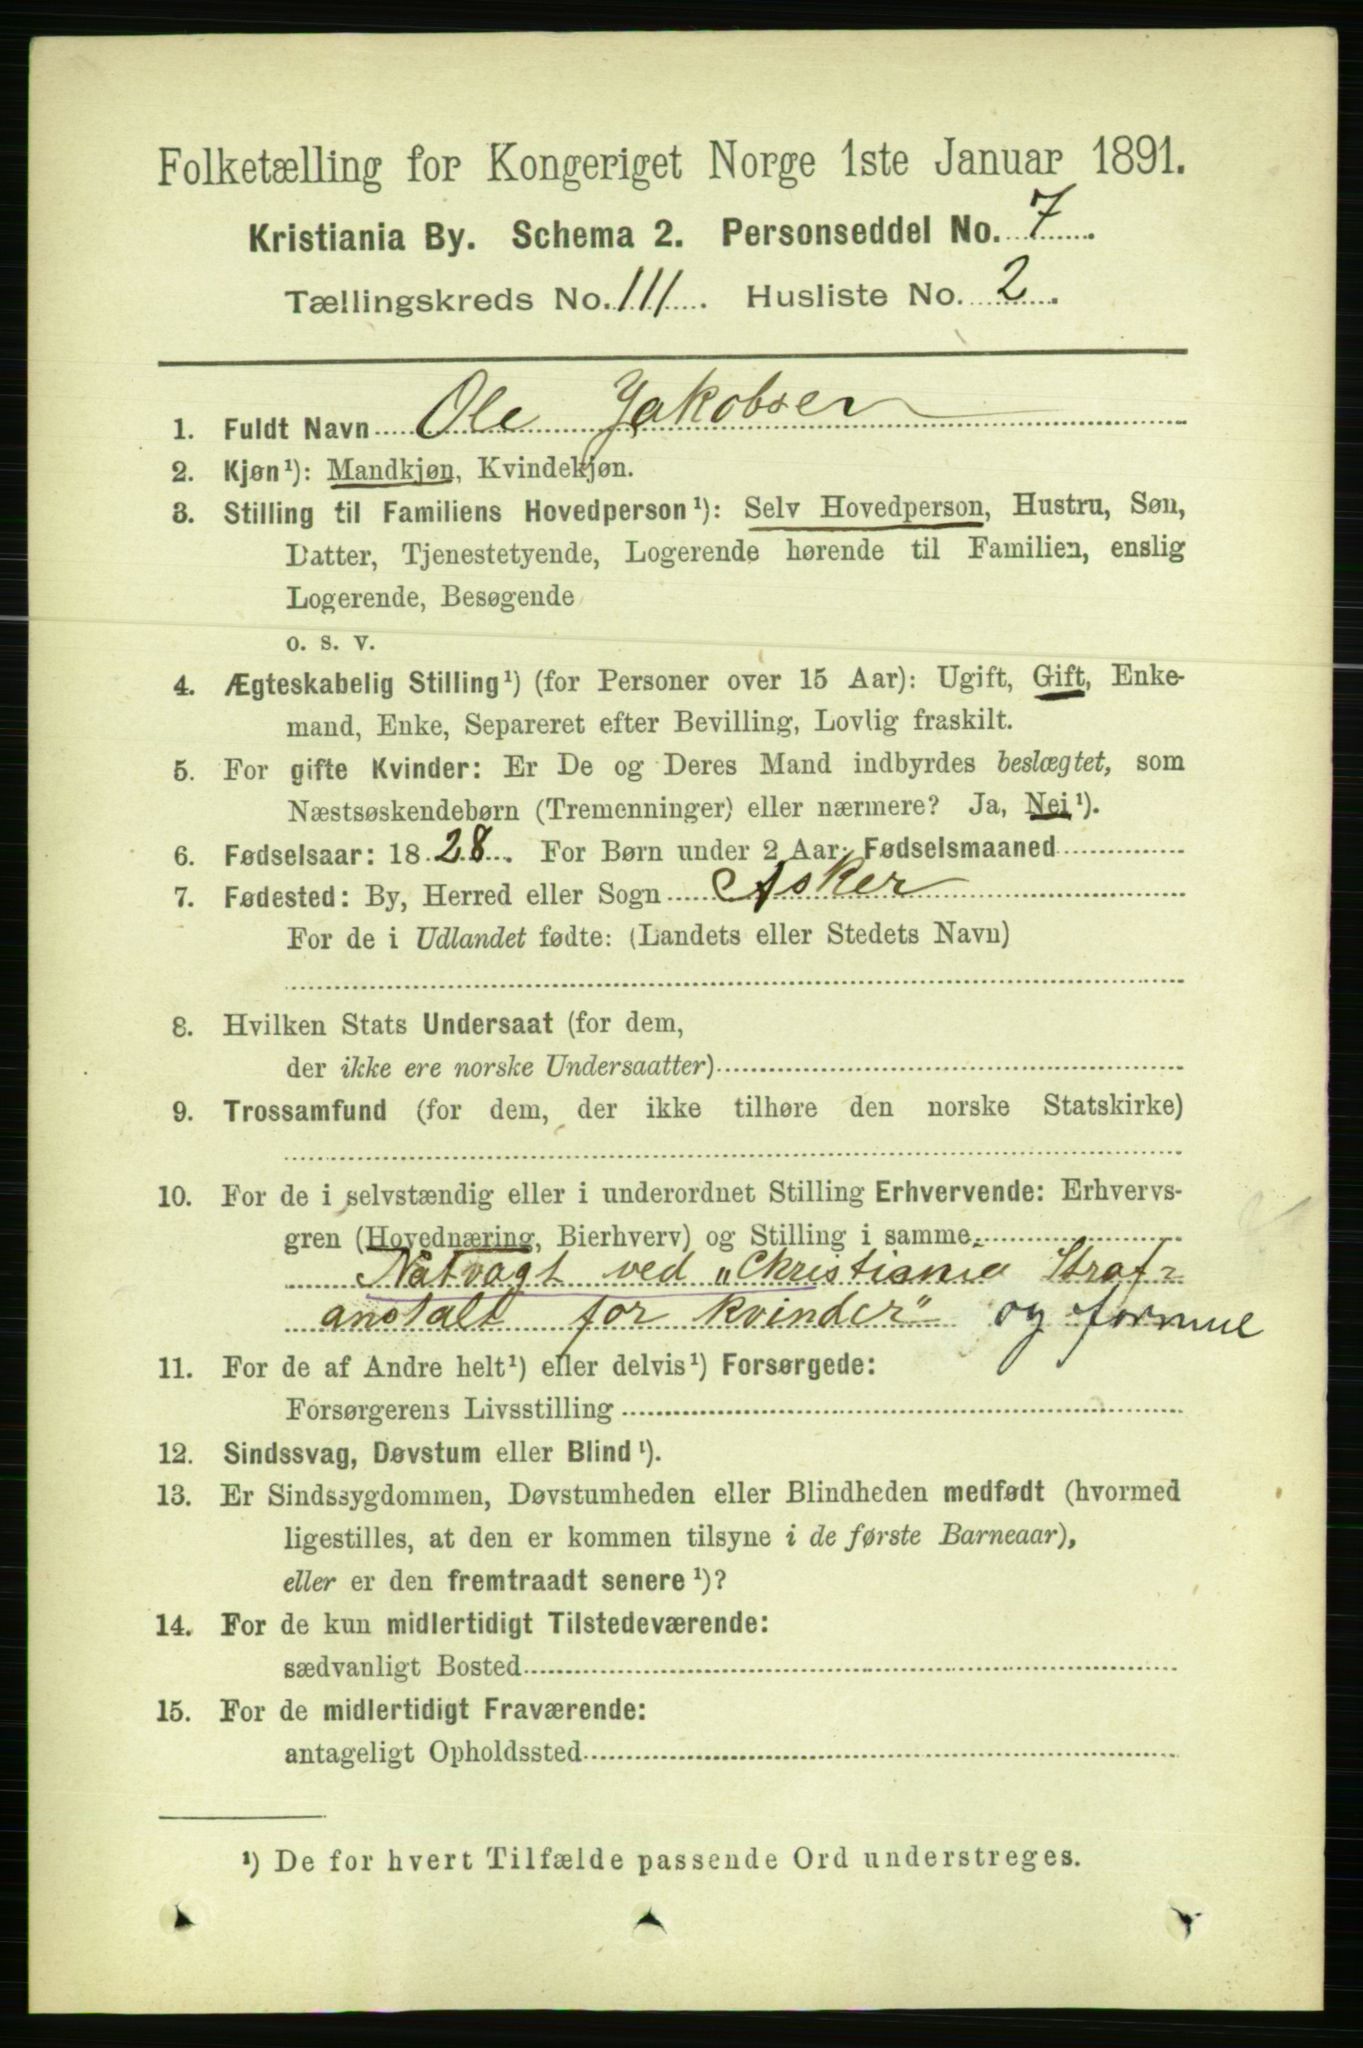 Folketælling for Kongeriget Norge 1ste Januar 1891.
Kristiania By. Schema 2. Personseddel No. 7.
Tællingskreds No. 111. Husliste No. 2.
1. Fuldt Navn Ole Jakobsen
2. Kjøn¹): Mandkjøn, Kvindekjøn.
3. Stilling til Familiens Hovedperson¹): Selv Hovedperson, Hustru, Søn,
Datter, Tjenestetyende, Logerende hørende til Familien, enslig
Logerende, Besøgende
o. s. v.
4. Ægteskabelig Stilling¹) (for Personer over 15 Aar): Ugift, Gift, Enke-
mand, Enke, Separeret efter Bevilling, Lovlig fraskilt.
5. For gifte Kvinder: Er De og Deres Mand indbyrdes beslægtet, som
Næstsøskendebørn (Tremenninger) eller nærmere? Ja, Nei¹).
6. Fødselsaar: 1828. For Børn under 2 Aar: Fødselsmaaned
7. Fødested: By, Herred eller Sogn Asker
For de i Udlandet fødte: (Landets eller Stedets Navn)
8. Hvilken Stats Undersaat (for dem,
der ikke ere norske Undersaatter)
9. Trossamfund (for dem, der ikke tilhøre den norske Statskirke)
10. For de i selvstændig eller i underordnet Stilling Erhvervende: Erhvervs-
gren (Hovednæring, Bierhverv) og Stilling i samme.
Natvagt ved „Christiania Straf=
anstalt for Kvinder" og formue
11. For de af Andre helt¹) eller delvis¹) Forsørgede:
Forsørgerens Livsstilling
12. Sindssvag, Døvstum eller Blind¹).
13. Er Sindssygdommen, Døvstumheden eller Blindheden medfødt (hvormed
ligestilles, at den er kommen tilsyne i de første Barneaar),
eller er den fremtraadt senere¹)?
14. For de kun midlertidigt Tilstedeværende:
sædvanligt Bosted
15. For de midlertidigt Fraværende:
antageligt Opholdssted
¹) De for hvert Tilfælde passende Ord understreges.